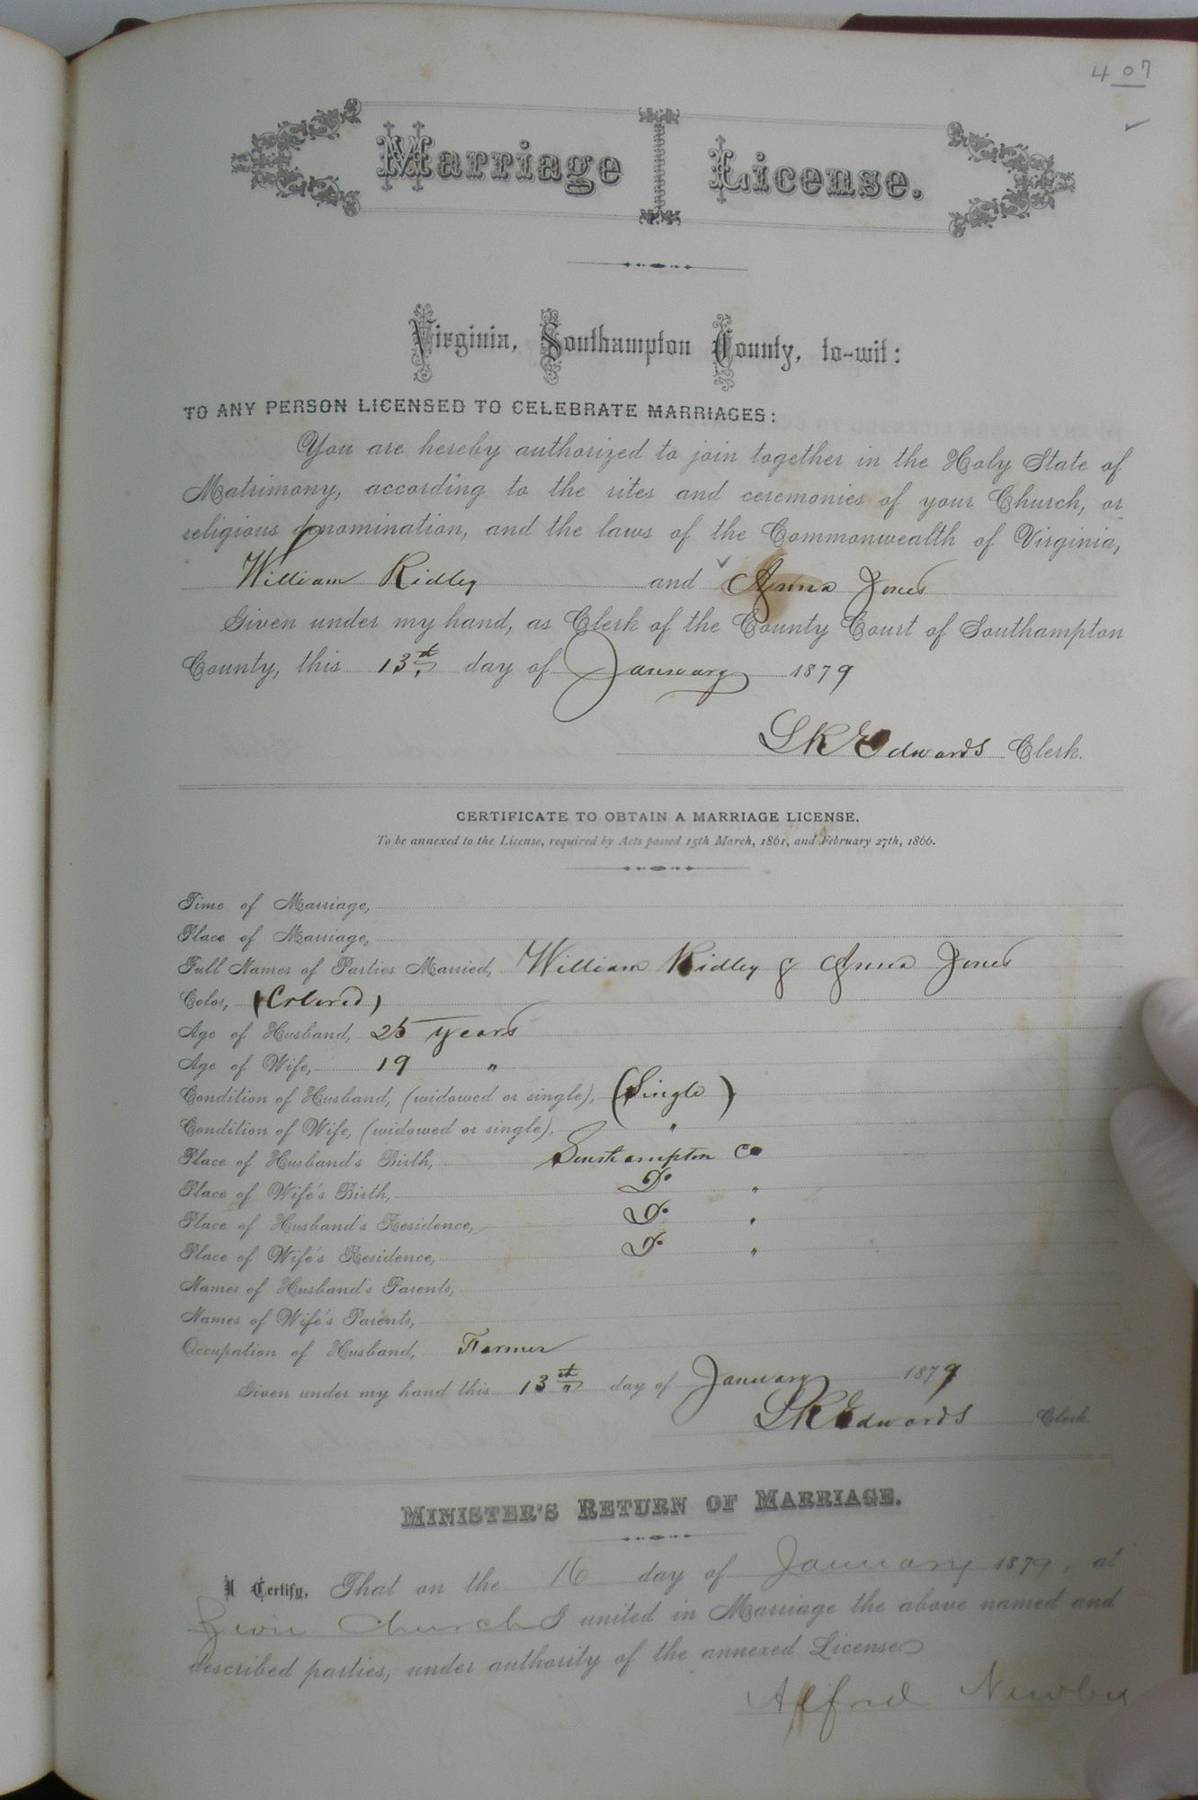 407
Marriage License.
Virginia, Southampton County, to-wit:
TO ANY PERSON LICENSED TO CELEBRATE MARRIAGES:
You are hereby authorized to join together in the Holy State of
Matrimony, according to the rites and ceremonies of your Church, or
religious denomination, and the laws of the Commonwealth of Virginia,
William Ridley and Anna Jones
Given under my hand, as Clerk of the County Court of Southampton
County, this 13th day of January 1879
L R Edwards Clerk.
CERTIFICATE TO OBTAIN A MARRIAGE LICENSE.
To be annexed to the License, required by Acts passed 15th March, 1861, and February 27th, 1866.
Time of Marriage,
Place of Marriage,
Full Names of Parties Married, William Ridley & Anna Jones
Color, (Colored)
Age of Husband, 25 years
Age of Wife, 19 "
Condition of Husband, (widowed or single), (Single)
Condition of Wife, (widowed or single), "
Place of Husband's Birth, Southampton Co
Place of Wife's Birth, Do "
Place of Husband's Residence, Do "
Place of Wife's Residence, Do "
Names of Husband's Parents,
Names of Wife's Parents,
Occupation of Husband, Farmer
Given under my hand this 13th day of January 1879
L R Edwards Clerk
MINISTER'S RETURN OF MARRIAGE.
I Certify, That on the 16 day of January 1879, at
Church I united in Marriage the above named and
described parties, under authority of the annexed License
Alfred